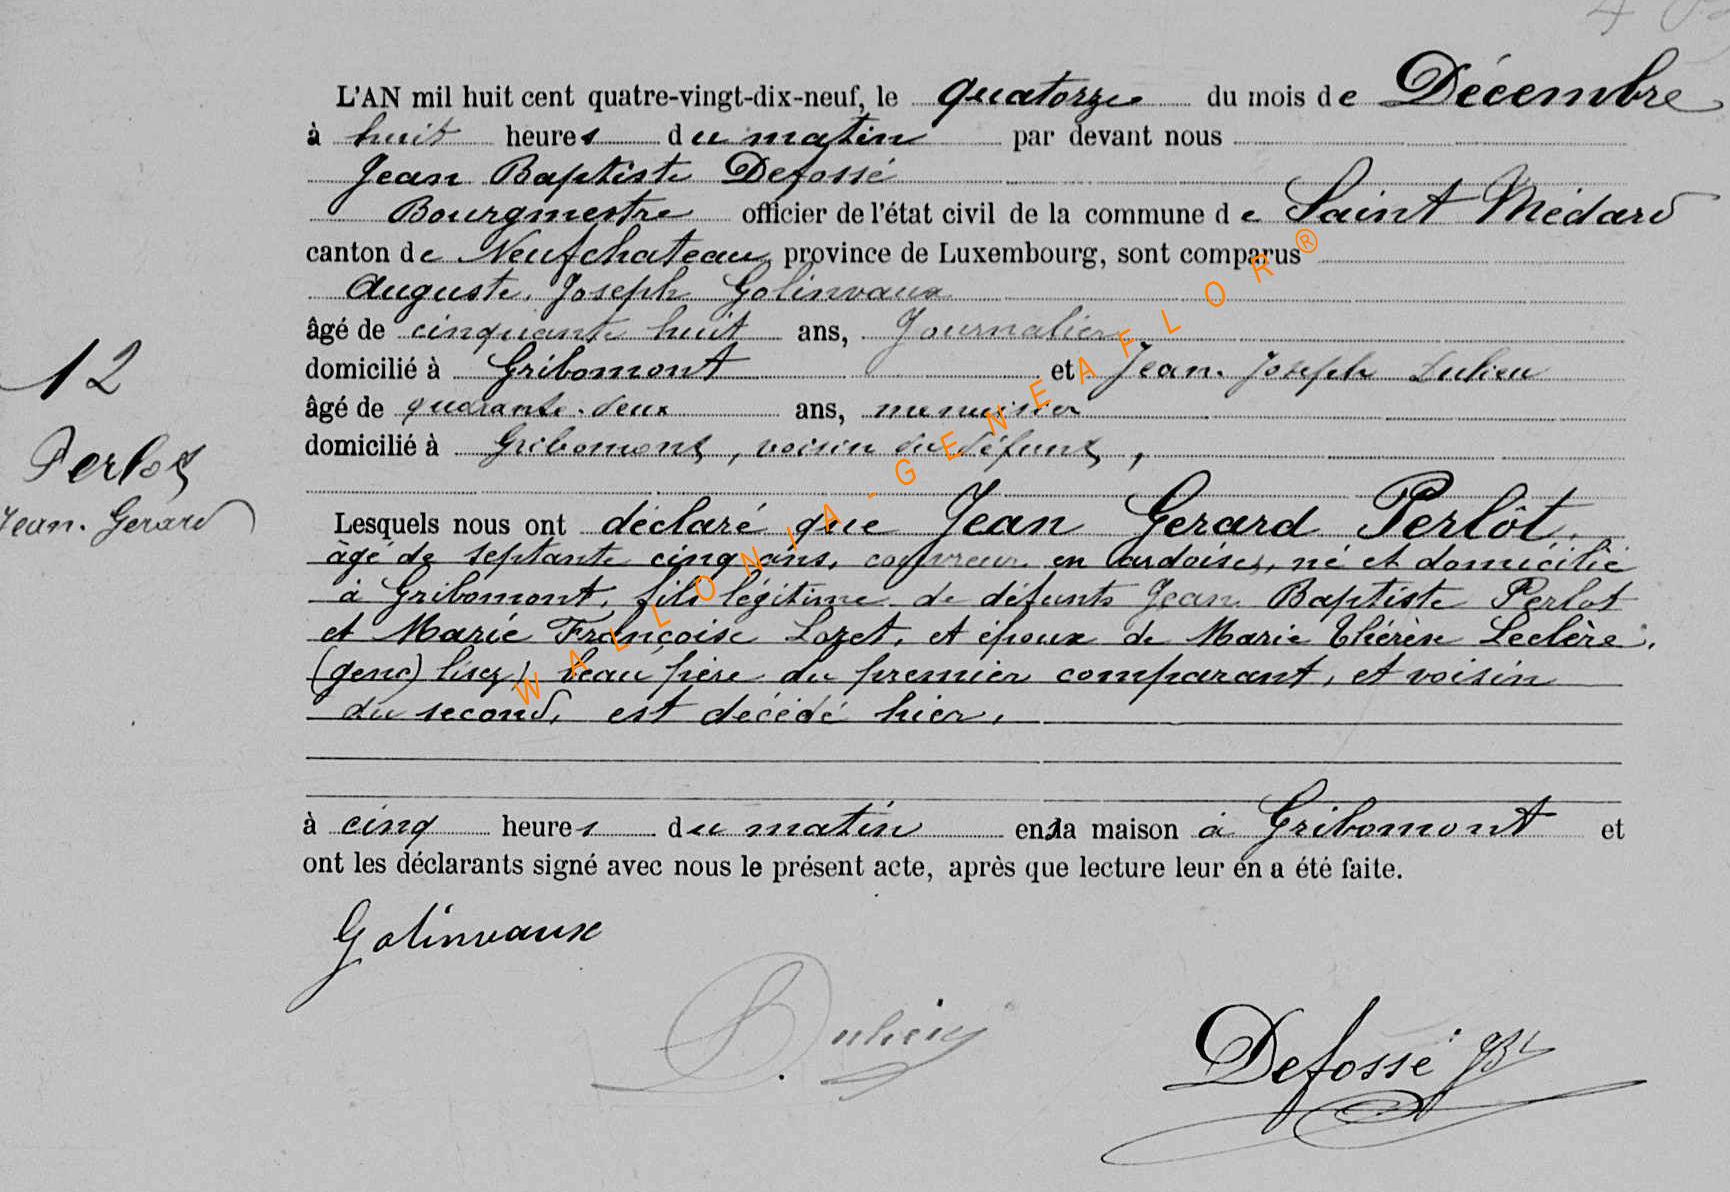 L'AN mil huit cent quatre-vingt-dix-neuf, le quatorze du mois de Décembre
à huit heures du matin par devant nous
Jean Baptiste Defossé
Bourgmestre officier de l'état civil de la commune de Saint Médard
canton de Neufchateau, province de Luxembourg, sont comparus
Auguste, Joseph Golinvaux
âgé de cinquante huit ans, Journalier
domicilié à Gribomont et Jean-Joseph Dulieu
âgé de quarante-deux ans, menuisier
domicilié à Gribomont, voisin du défunt,
12
Perlot
Jean-Gerard
Lesquels nous ont déclaré que Jean Gerard Perlôt,
âgé de septante cinq ans, couvreur en ardoises, né et domicilié
à Gribomont, fils légitime de défunts Jean Baptiste Perlot
et Marie Françoise Lozet, et époux de Marie Thérèse Leclère,
(genc) lisez) beau père du premier comparant, et voisin
du second, est décédé hier,
à cinq heures du matin en sa maison à Gribomont et
ont les déclarants signé avec nous le présent acte, après que lecture leur en a été faite.
Golinvaux
Dulieu
Defossé
WALLONIA-GENEAFLOR®